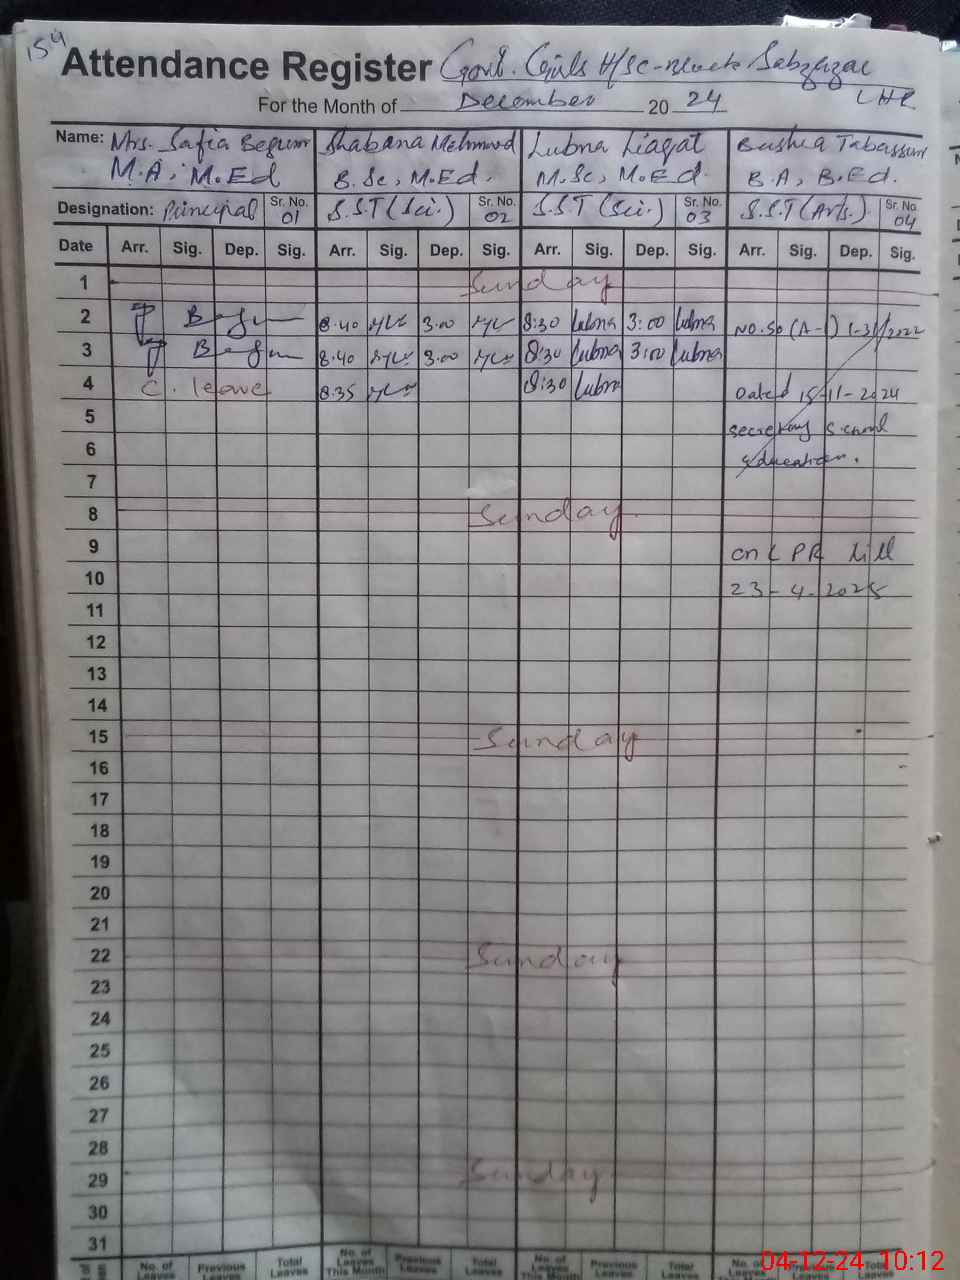 154
Attendance Register Govt. Girls H/Sc-Block Sabzazar
LHR
For the Month of December 2024
Name: Mrs. Safia Begum Shabana Mehmood Lubna Liaqat Bushra Tabassum
M.A, M.Ed B.Sc, M.Ed. M.Sc, M.Ed. B.A, B.Ed.
Designation: Principal Sr. No. 01 S.S.T (Sci.) Sr. No. 02 S.S.T (Sci.) Sr. No. 03 S.S.T (Arts.) Sr. No. 04
Date Arr. Sig. Dep. Sig. Arr. Sig. Dep. Sig. Arr. Sig. Dep. Sig. Arr. Sig. Dep. Sig.
1 Sunday
2 Begum 8.40 3.00 8:30 Lubna 3:00 Lubna No. SO (A-1) 1-31/2022
3 Begum 8.40 3.00 8:30 Lubna 3:00 Lubna
4 C. leave 8.35 8:30 Lubna Dated 15-11-2024
5 Secretary School
6 Education.
7
8 Sunday
9 on LPR till
10 23-4-2025
11
12
13
14
15 Sunday
16
17
18
19
20
21
22 Sunday
23
24
25
26
27
28
29 Sunday
30
31
No. of Leaves Previous Leaves Total Leaves No. of Leaves This Month Previous Leaves Total Leaves No. of Leaves This Month Previous Leaves Total Leaves No. of Leaves Previous Leaves Total Leaves
04-12-24 10:12